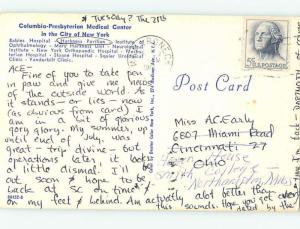 * TUESDAY? The 21st
Columbia-Presbyterian Medical Center
in the City of New York
Babies Hospital - Harkness Pavilion - Institute of
Ophthalmology - Mary Harkness Unit - Neurological
Institute - New York Orthopaedic Hospital
Hospital - Sloane Hospital - Squier Urological
Clinic - Vanderbilt Clinic.
ACE-
Fine of you to take pen
in paw and give me word
of the outside world. As it
stands - or lies - now I
(as obvious from card) am
in a bit of glorious
gory glory. My summer, up
until end of July, was
great - trip divine - but
operations later, it looks
a little dismal. I'll be
out soon & hope to be
back at SC on time &
on my feet & behind. Am actually alot better than
this sounds. Hope you got
5¢ U.S. POSTAGE
Post Card
Miss AC Early
6607 Miami Road
Cincinnati 27
Ohio
House
Smith College
Northampton, Mass